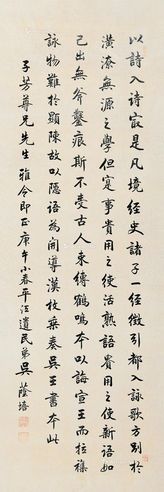 以詩入詩最是凡境經史諸子一經徵引都入詠歌方別於
潢潦無源之學但寔事貴用之使活熟語貴用之使新語如
己出無斧鑿痕斯不受古人束縛鶴鳴本以誨宣王而拉雜
詠物難於顯陳故以隱語為開導漢枚乘奏吳王書本此
子芳尊兄先生雅令即正庚午小春平江遺民弟吳蔭培